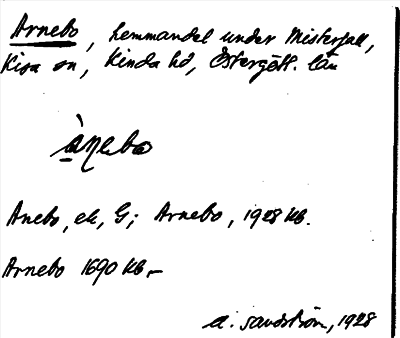 Arnebo, hemmandel under Misterfall,
Kisa sn, Kinda hd, Östergötl. län
ànebo
Anebo, ek, G; Arnebo, 1928 kb.
Arnebo 1690 kb.-
A. Sandström, 1928